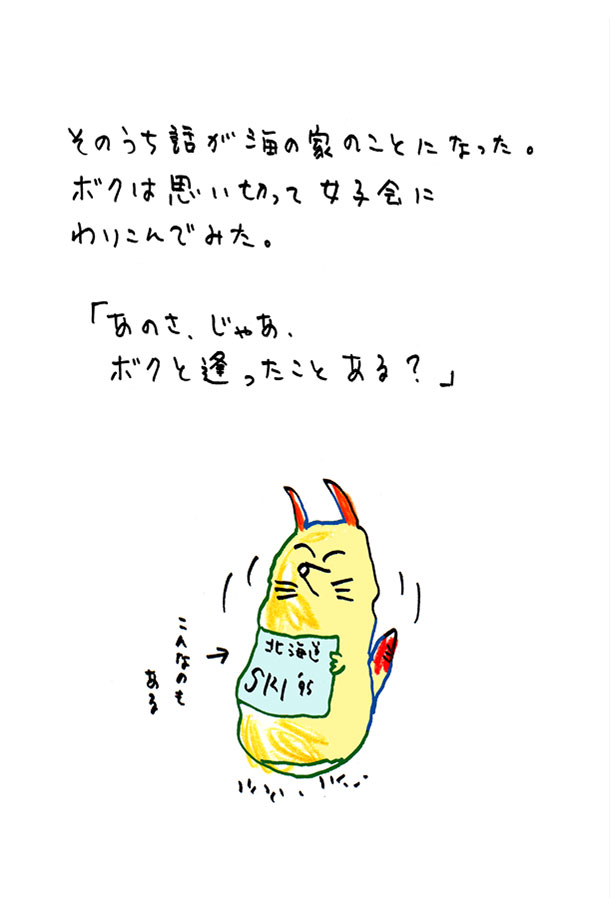 そのうち話が海の家のことになった。
ボクは思い切って女子会に
わりこんでみた。
「あのさ、じゃあ、
ボクと逢ったことある？」
こんなのも
ある
→
北海道
SKI '95